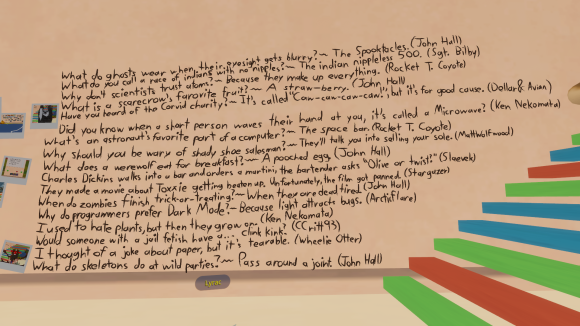 What do ghosts wear when their eyesight gets blurry?~ The Spooktocles. (John Hall)
What do you call a race of indians with no nipples?~ The indian nippleless 500. (Sgt. Bilby)
Why don't scientists trust atoms?~ Because they make up everything. (Rocket T. Coyote)
What is a scarecrow's favorite fruit?~ A straw-berry. (John Hall)
Have you heard of the Corvid charity?~ It's called "Caw-caw-caw-caw", but it's for good cause. (Dollar& Avian)
Did you know when a short person waves their hand at you, it's called a Microwave? (Ken Nekomata)
What's an astronaut's favorite part of a computer?~ The space bar. (Rocket T. Coyote)
Why should you be wary of shady shoe salesman?~ They'll talk you into selling your sole. (MattWolfwood)
What does a werewolf eat for breakfast?~ A pooched egg. (John Hall)
Charles Dickins walks into a bar and orders a martini, the bartender asks "Olive or twist?" (Slaevek)
They made a movie about Toxxie getting beaten up. Unfortunately, the film got panned. (Stargazer)
When do zombies finish trick-or-treating?~ When they are dead tired. (John Hall)
Why do programmers prefer Dark Mode?~ Because light attracts bugs. (ArdisFlare)
I used to hate plants, but then they grow on (Ken Nekomata)
Would someone with a jail fetish have a... clink kink? (CCritt93)
I thought of a joke about paper, but it's tearable. (Wheelie Otter)
What do skeletons do at wild parties?~ Pass around a joint. (John Hall)
Lyrac